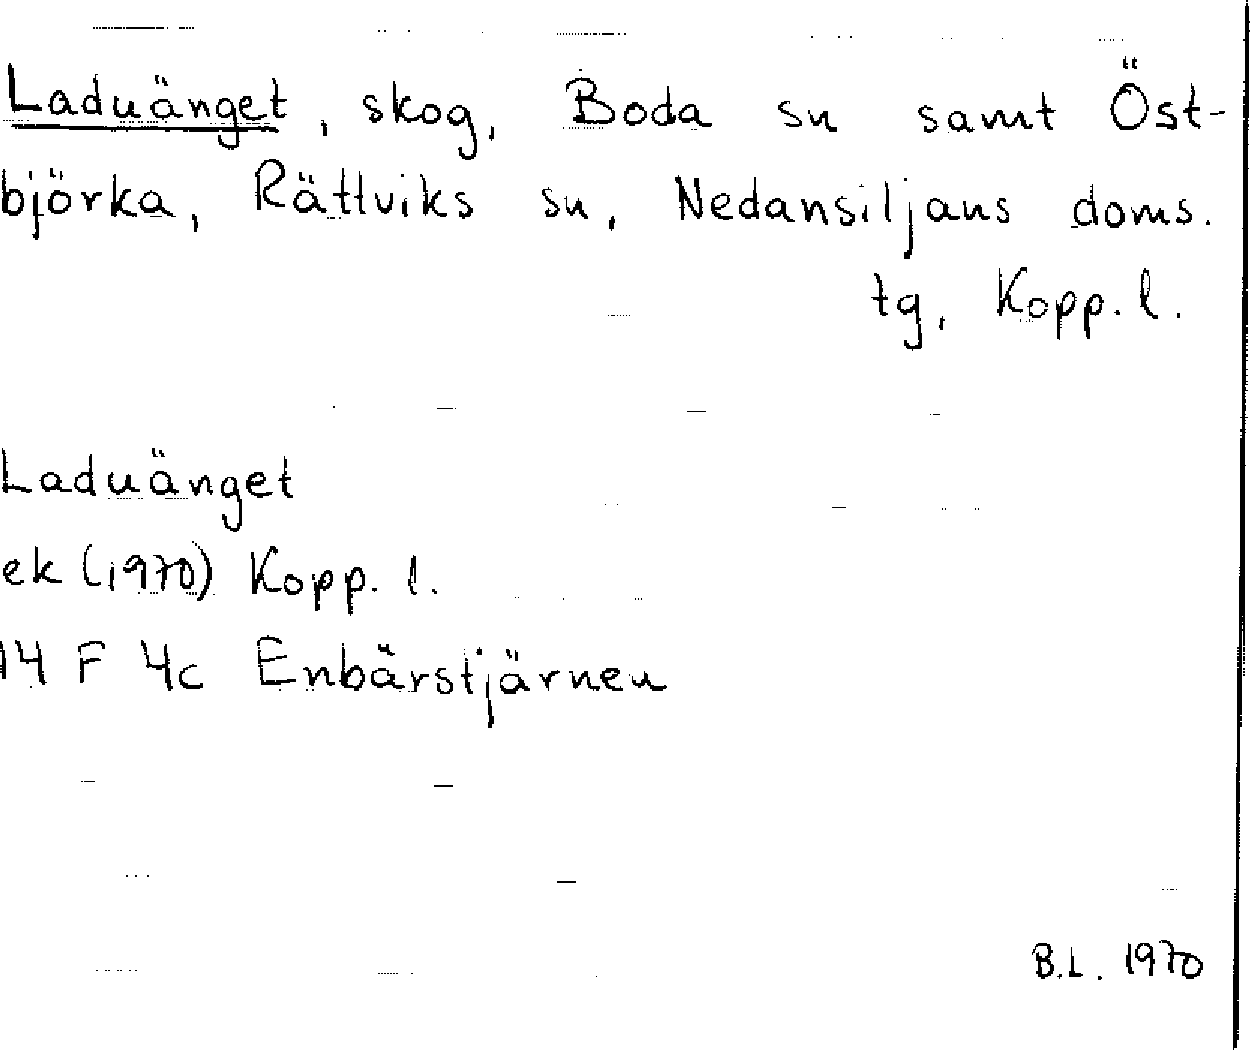 Laduänget, skog, Boda sn samt Öst-
björka, Rättviks sn, Nedansiljans doms.
tg, Kopp. l.
Laduänget
ek (1970) Kopp. l.
14 F 4c Enbärstjärnen
B.L. 1970